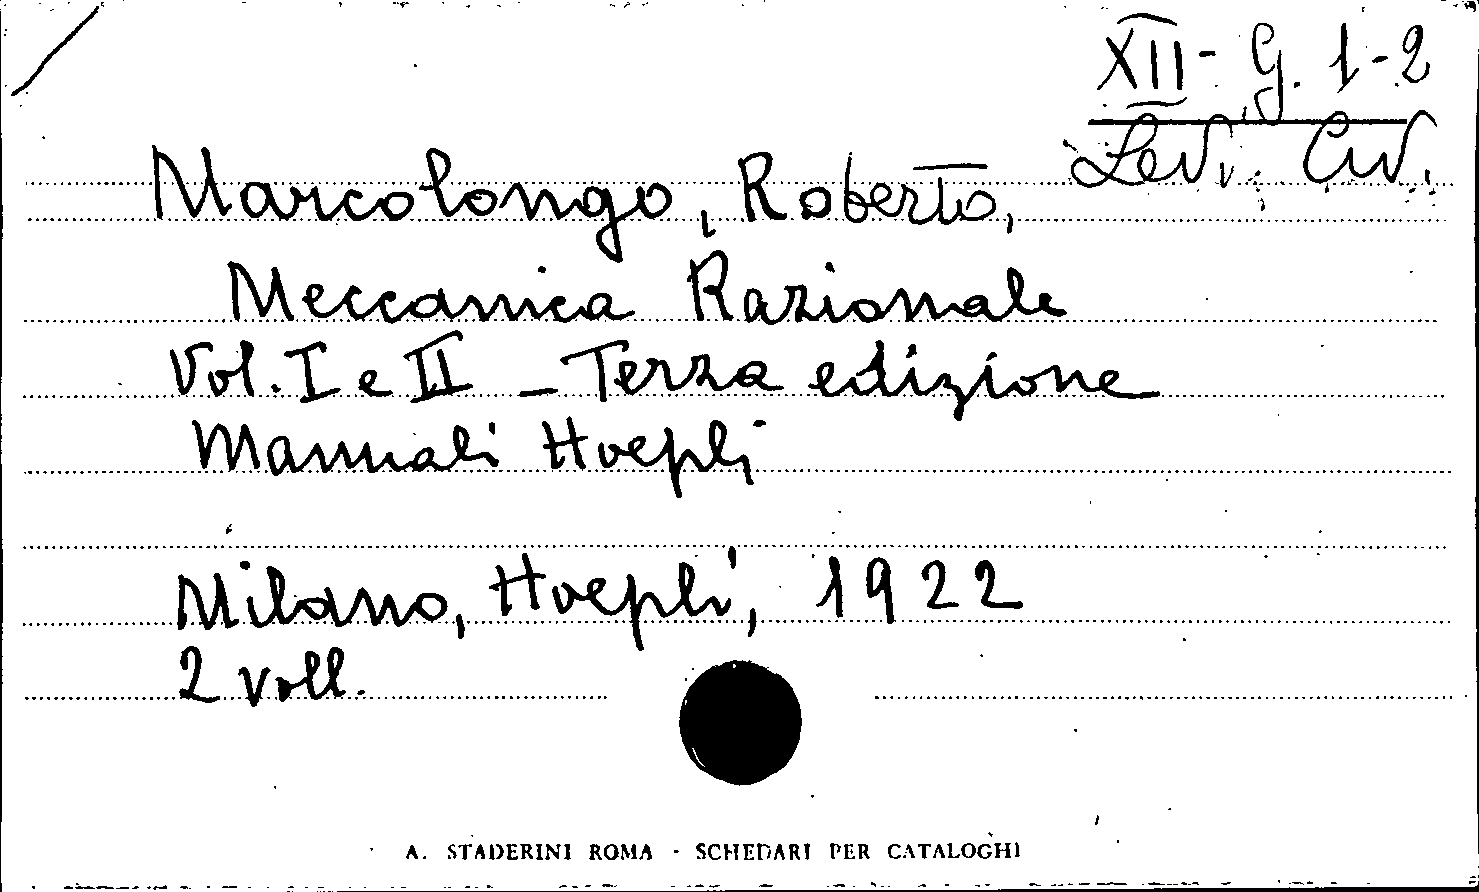 XII - G. 1-2
Lev. Civ.
Marcolongo, Roberto,
Meccanica Razionale
Vol. I e II - Terza edizione
Manuali Hoepli
Milano, Hoepli, 1922
2 voll.
A. STADERINI ROMA - SCHEDARI PER CATALOGHI